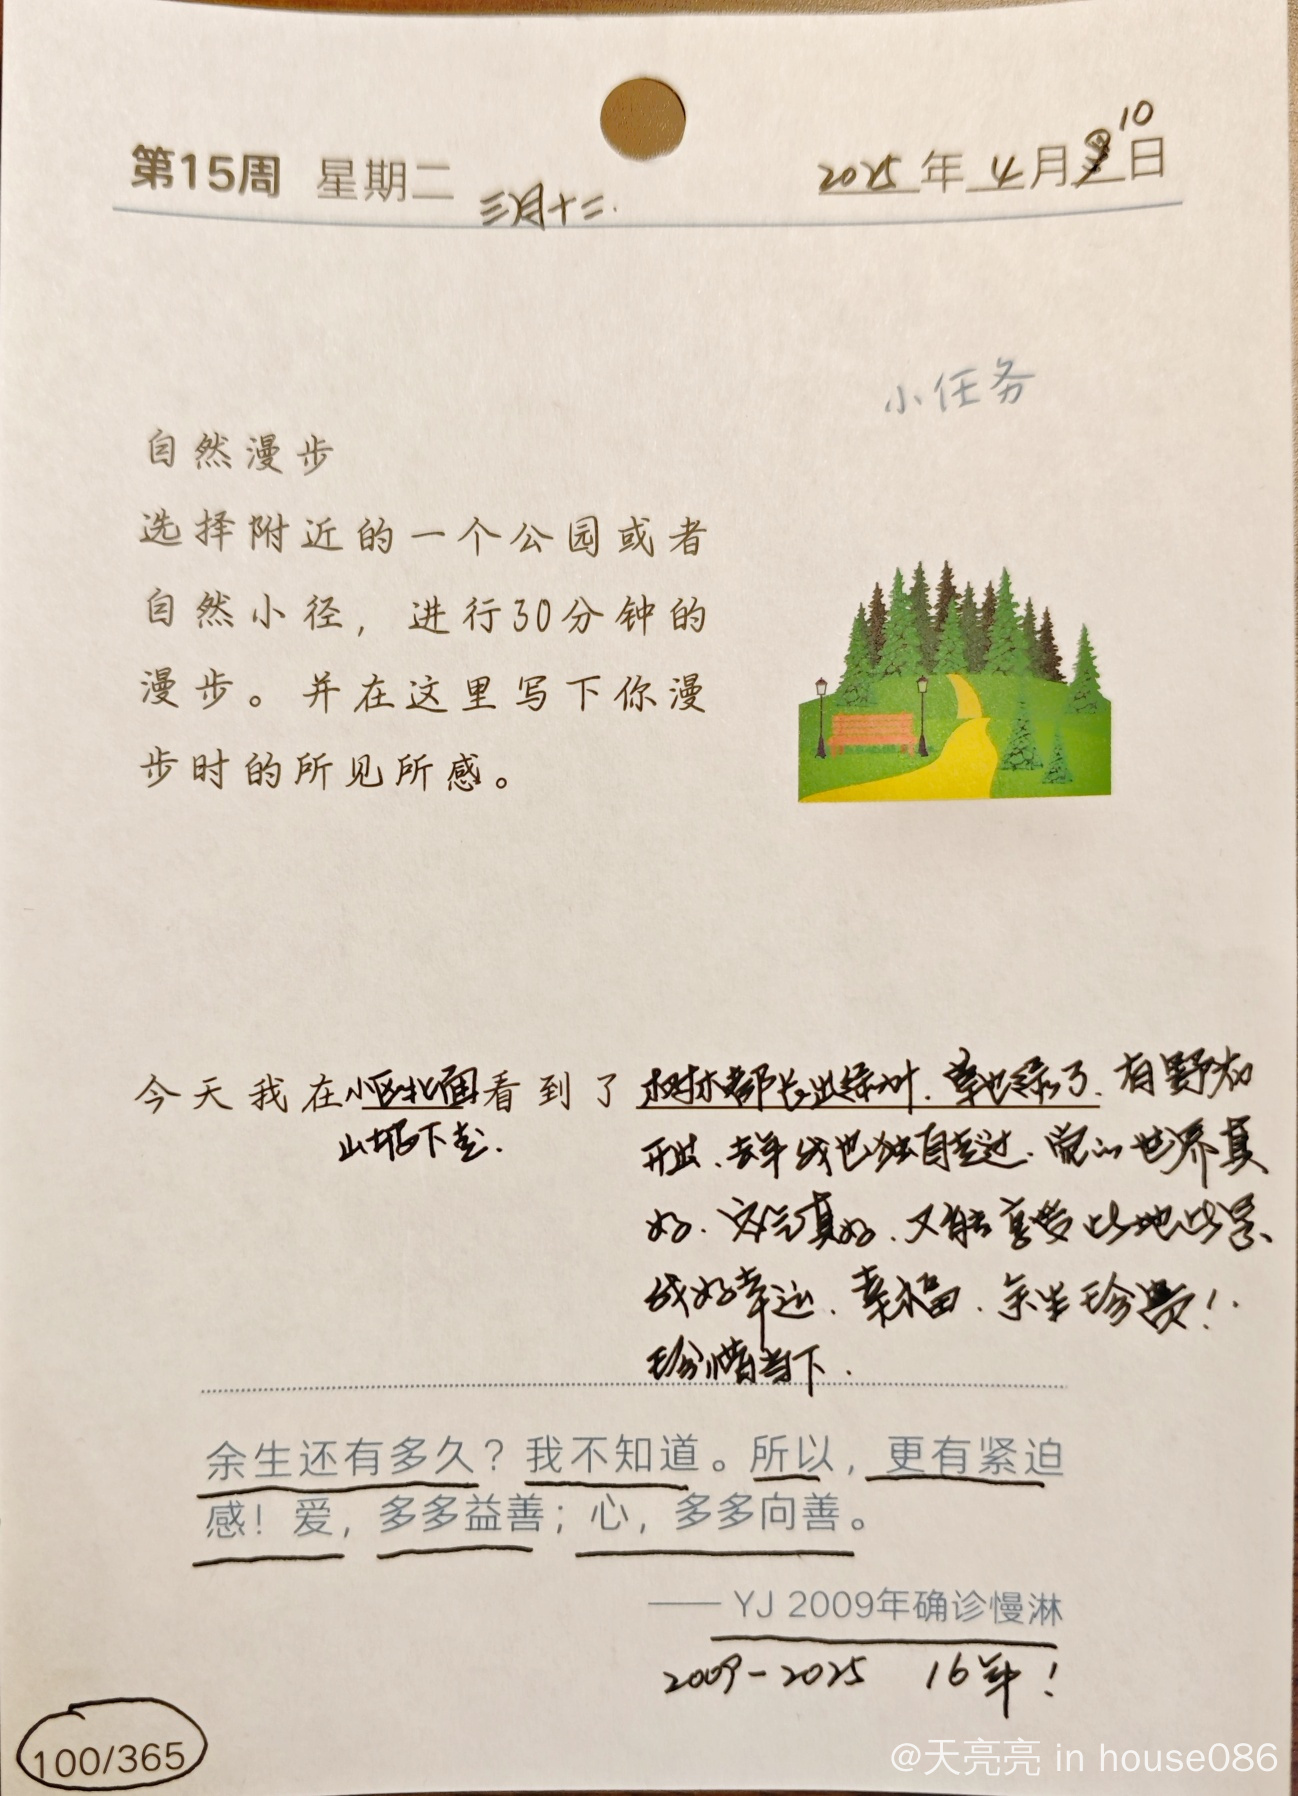 第15周 星期二 三月十三. 2025年4月10日
小任务
自然漫步
选择附近的一个公园或者
自然小径，进行30分钟的
漫步。并在这里写下你漫
步时的所见所感。
今天我在小区北面看到了树林都长出绿叶.草也绿了.有野花
山坡下走.
开出.去年我也独自走过.觉的世界真
好.空气真好.又能享受此地此景
我好幸运.幸福.余生珍贵!.
珍惜当下.
余生还有多久？我不知道。所以，更有紧迫
感！爱，多多益善；心，多多向善。
—— YJ 2009年确诊慢淋
2009-2025 16年!
100/365
@天亮亮 in house086